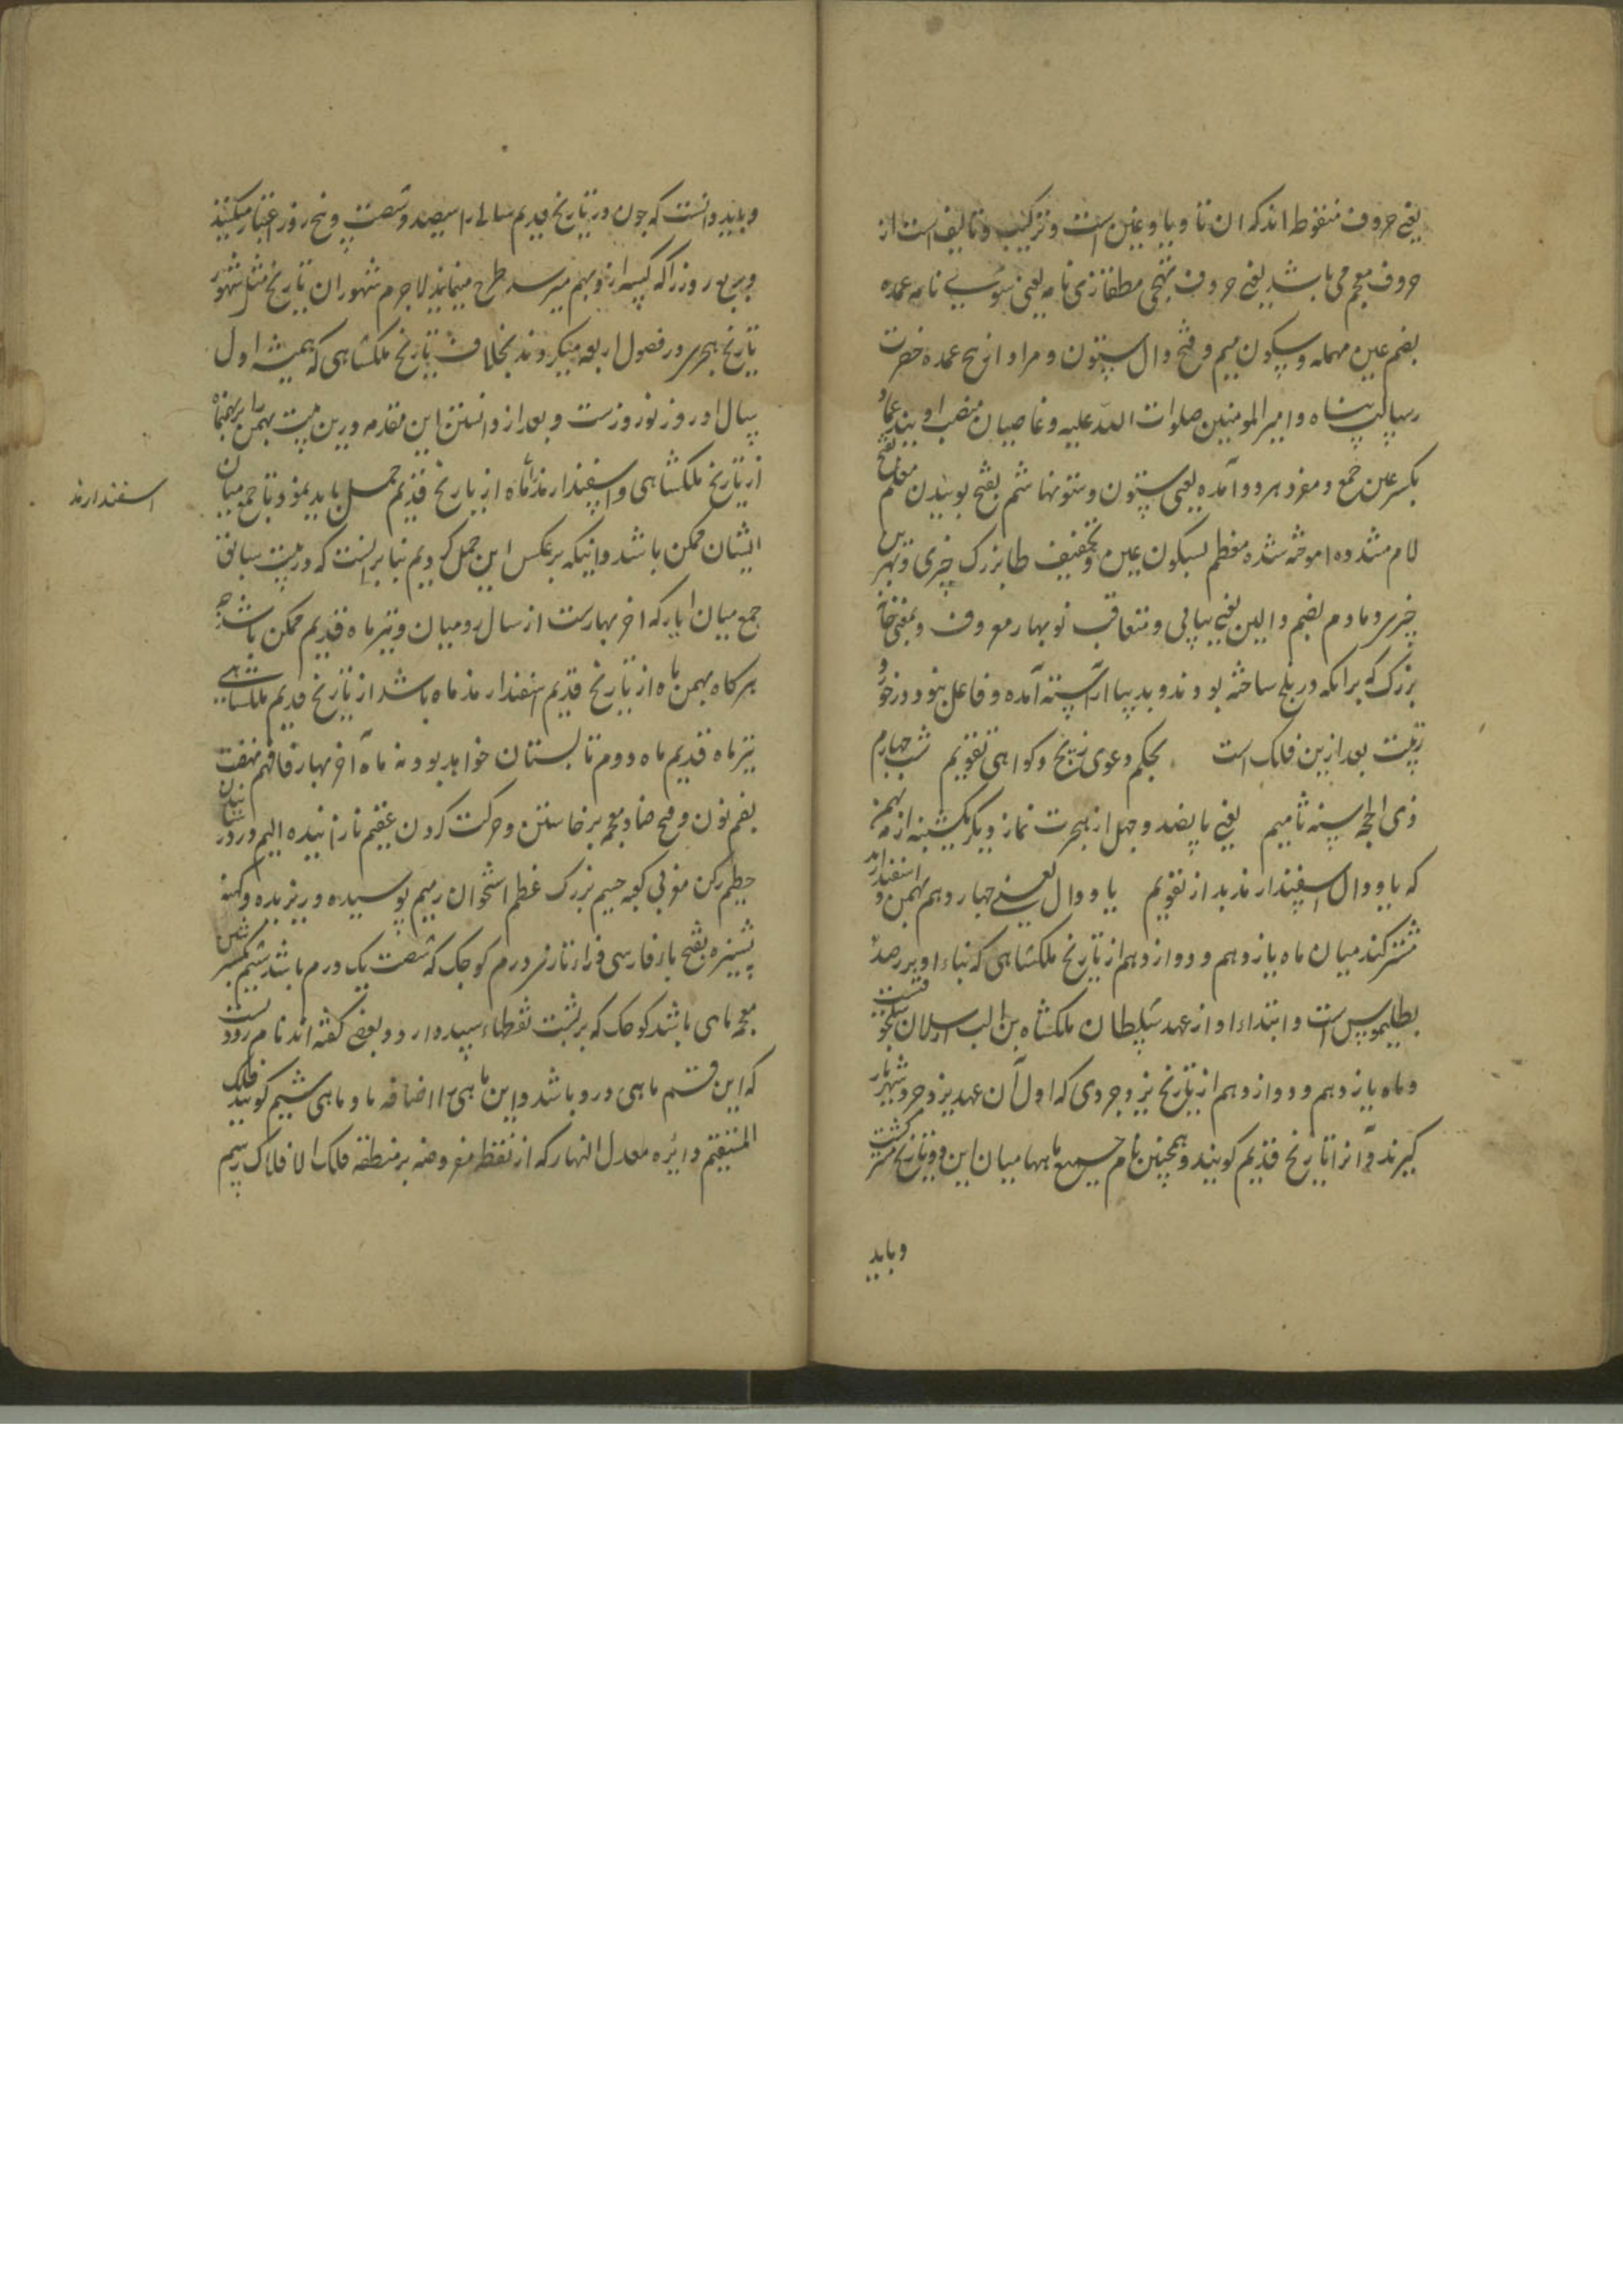 یعنی حروف منقوط اند که ان تا و یا و غین است و ترکیب و تالیف است از
حروف معجم می باشد یعنی حروف تهجی مطلقا زی نامه یعنی سوی نامه عمده
بضم عین مهمله و سکون میم و فتح دال ستون و مراد از عمده حضرت
رسالت پناه و امیر المومنین صلوات الله علیه و غاصبان منصب او بند عماد
بکسر عین جمع و مفرد هر دو آمده یعنی ستون و ستونها شم بفتح بوییدن معلم بفتح
لام مشدده اموخته شده معظم بسکون عین و تخفیف ظا بزرک چیزی و بهترین
چیزی و مادم بضم دالین یعنی پیاپی و متعاقب نوبهار معروف و بمعنی خانه
بزرک که برامکه در بلخ ساخته بودند و بدیبا آراسته آمده و فاعل بنوردد خود
بیت بعد ازین فلک است بحکم دعوی زیج و کواهی تقویم شب چهارم
ذی الحجه سنه ثامیم یعنی پانصد و چهل از هجرت نماز دیکر یکشنبه از مه بهمن
که یا و دال اسفندارمذ بد از تقویم یا و دال یعنی چهاردهم بهمن و اسفندارمذ
مشترکند میان ماه یازدهم و دوازدهم از تاریخ ملکشاهی که بناء او بر رصد
بطلیموس است و ابتداء او از عهد سلطان ملکشاه بن الب ارسلان سلجوقیست
و ماه یازدهم و دوازدهم از تاریخ یزدجردی که اول آن عهد یزدجرد شهریار
کیرند و آنرا تاریخ قدیم کویند و همچنین نام جمیع ماهها میان این دو تاریخ مشترکست
و باید
و باید دانست که چون در تاریخ قدیم سالی را سیصد و شصت و پنج روز اعتبار میکنند
و ربع روز را که کبیسه ازو بهم میرسد طرح مینمایند لاجرم شهور ان تاریخ مثل شهور
تاریخ هجری در فصول اربعه میکردند بخلاف تاریخ ملکشاهی که همیشه اول
سال او روز نوروزست و بعد از دانستن این مقدمه درین بیت بهمن را بر بهمنماه
از تاریخ ملکشاهی و اسفندارمذ ماه از تاریخ قدیم حمل باید نمود تا جمع میان
اسفندارمذ
ایشان ممکن باشد و انیکه برعکس این حمل کردیم بنابرانست که در بیت سابق
جمع میان ایار که اخر بهارست از سال رومیان و تیرماه قدیم ممکن باشد چه
هرکاه بهمن ماه از تاریخ قدیم اسفندارمذ ماه باشد از تاریخ قدیم ملکشاهی
تیرماه قدیم ماه دوم تابستان خواهد بود نه ماه آخر بهار فافهم نهضت
بضم نون و فتح ضاد معجمه برخاستن و حرکت کردن عقیم نازاینده الیم دردناک
حطیم رکن مغربی کعبه جسیم بزرک عظم استخوان رمیم پوسیده و ریزیده و کهنه
پشیزه بفتح باء فارسی و زاء تازی درم کوچک که شصت یک درم باشد شیم بکسر شین
معجمه ماهی باشد کوچک که بر پشت نقطهاء سپید دارد و بعضی کفته اند نام رودیست
که این قسم ماهی درو باشد و این ماهی را اضافه باو ماهی شیم کویند فلک
المستقیم دایره معدل النهار که از نقطه مفروضه بر منطقه فلک الافلاک رسم